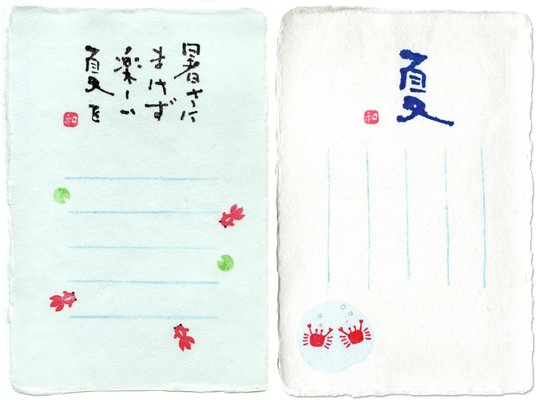 暑さに
まけず
楽しい
夏を
和
夏
和